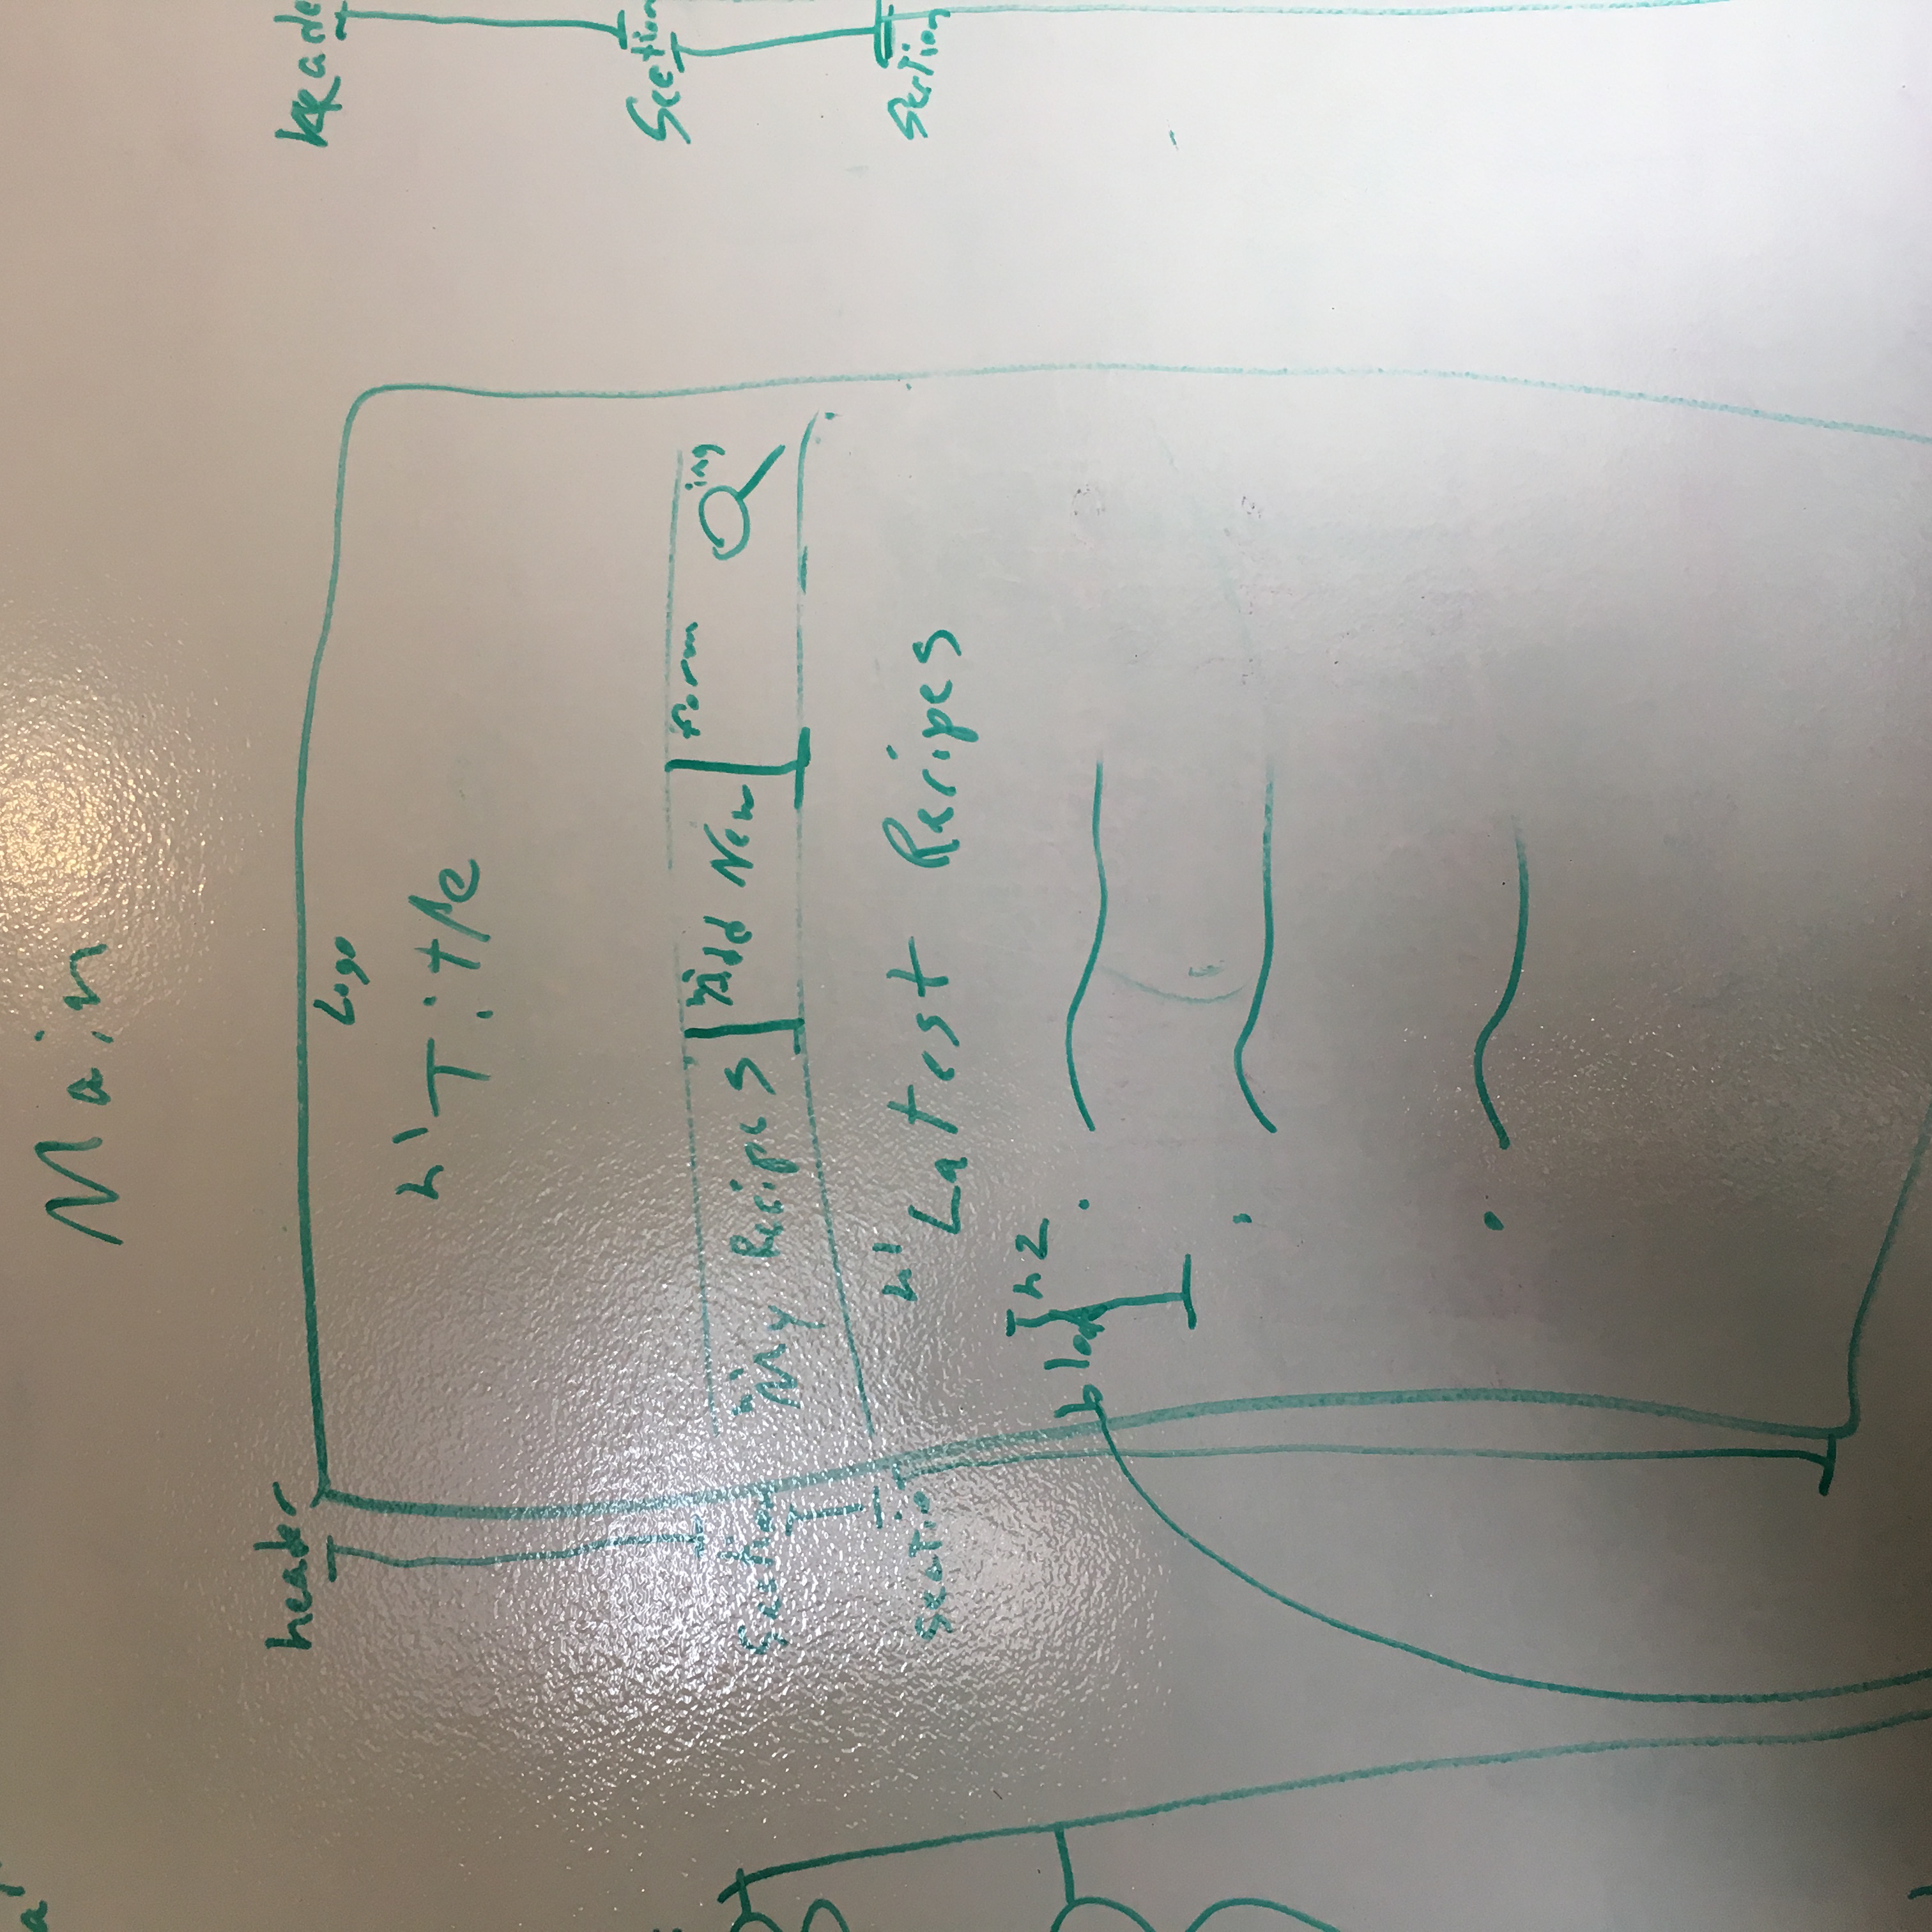 Main
header
Logo
h1 Title
Section
My Recipes
Add New
form
img
section
h1 Latest Recipes
h2
Section
Section